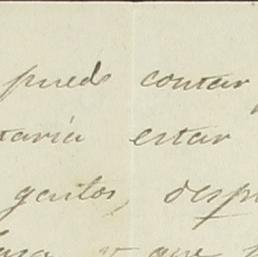 puedo contar
taria estar
gentes, desp
que